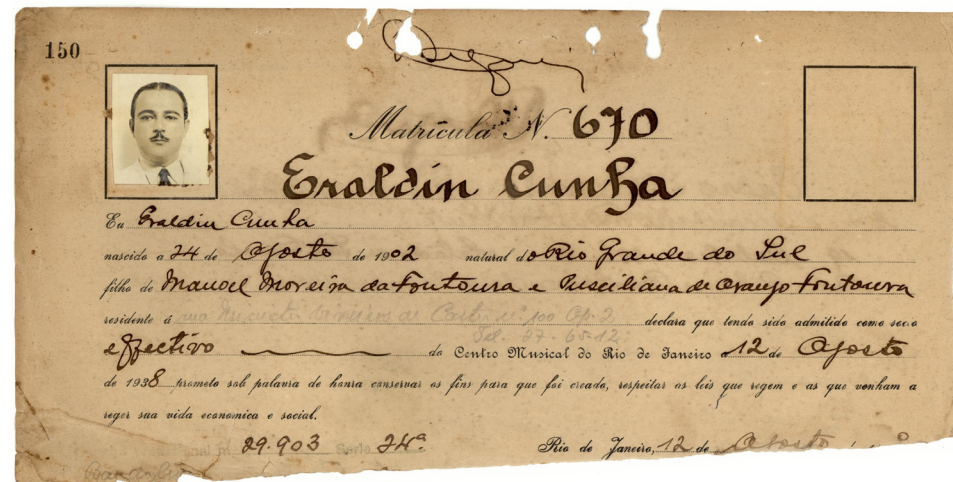 150
Matrícula N. 670
Eraldin Cunha
Eu Eraldin Cunha
nascido a 24 de Agosto de 1902 natural do Rio Grande do Sul
filho de Manoel Moreira da Fontoura e Prisciliana de Araujo Fontoura
residente á rua de Castro nº 100 Ap. 2 declara que tendo sido admitido como socio
Tel. 27
effectivo do Centro Musical do Rio de Janeiro a 12 de Agosto
de 1938 prometo sob palavra de honra conservar os fins para que foi creado, respeitar as leis que regem e as que venham a
reger sua vida economica e social.
29.903 Serie 24ª
Rio de Janeiro, 12 de Agosto